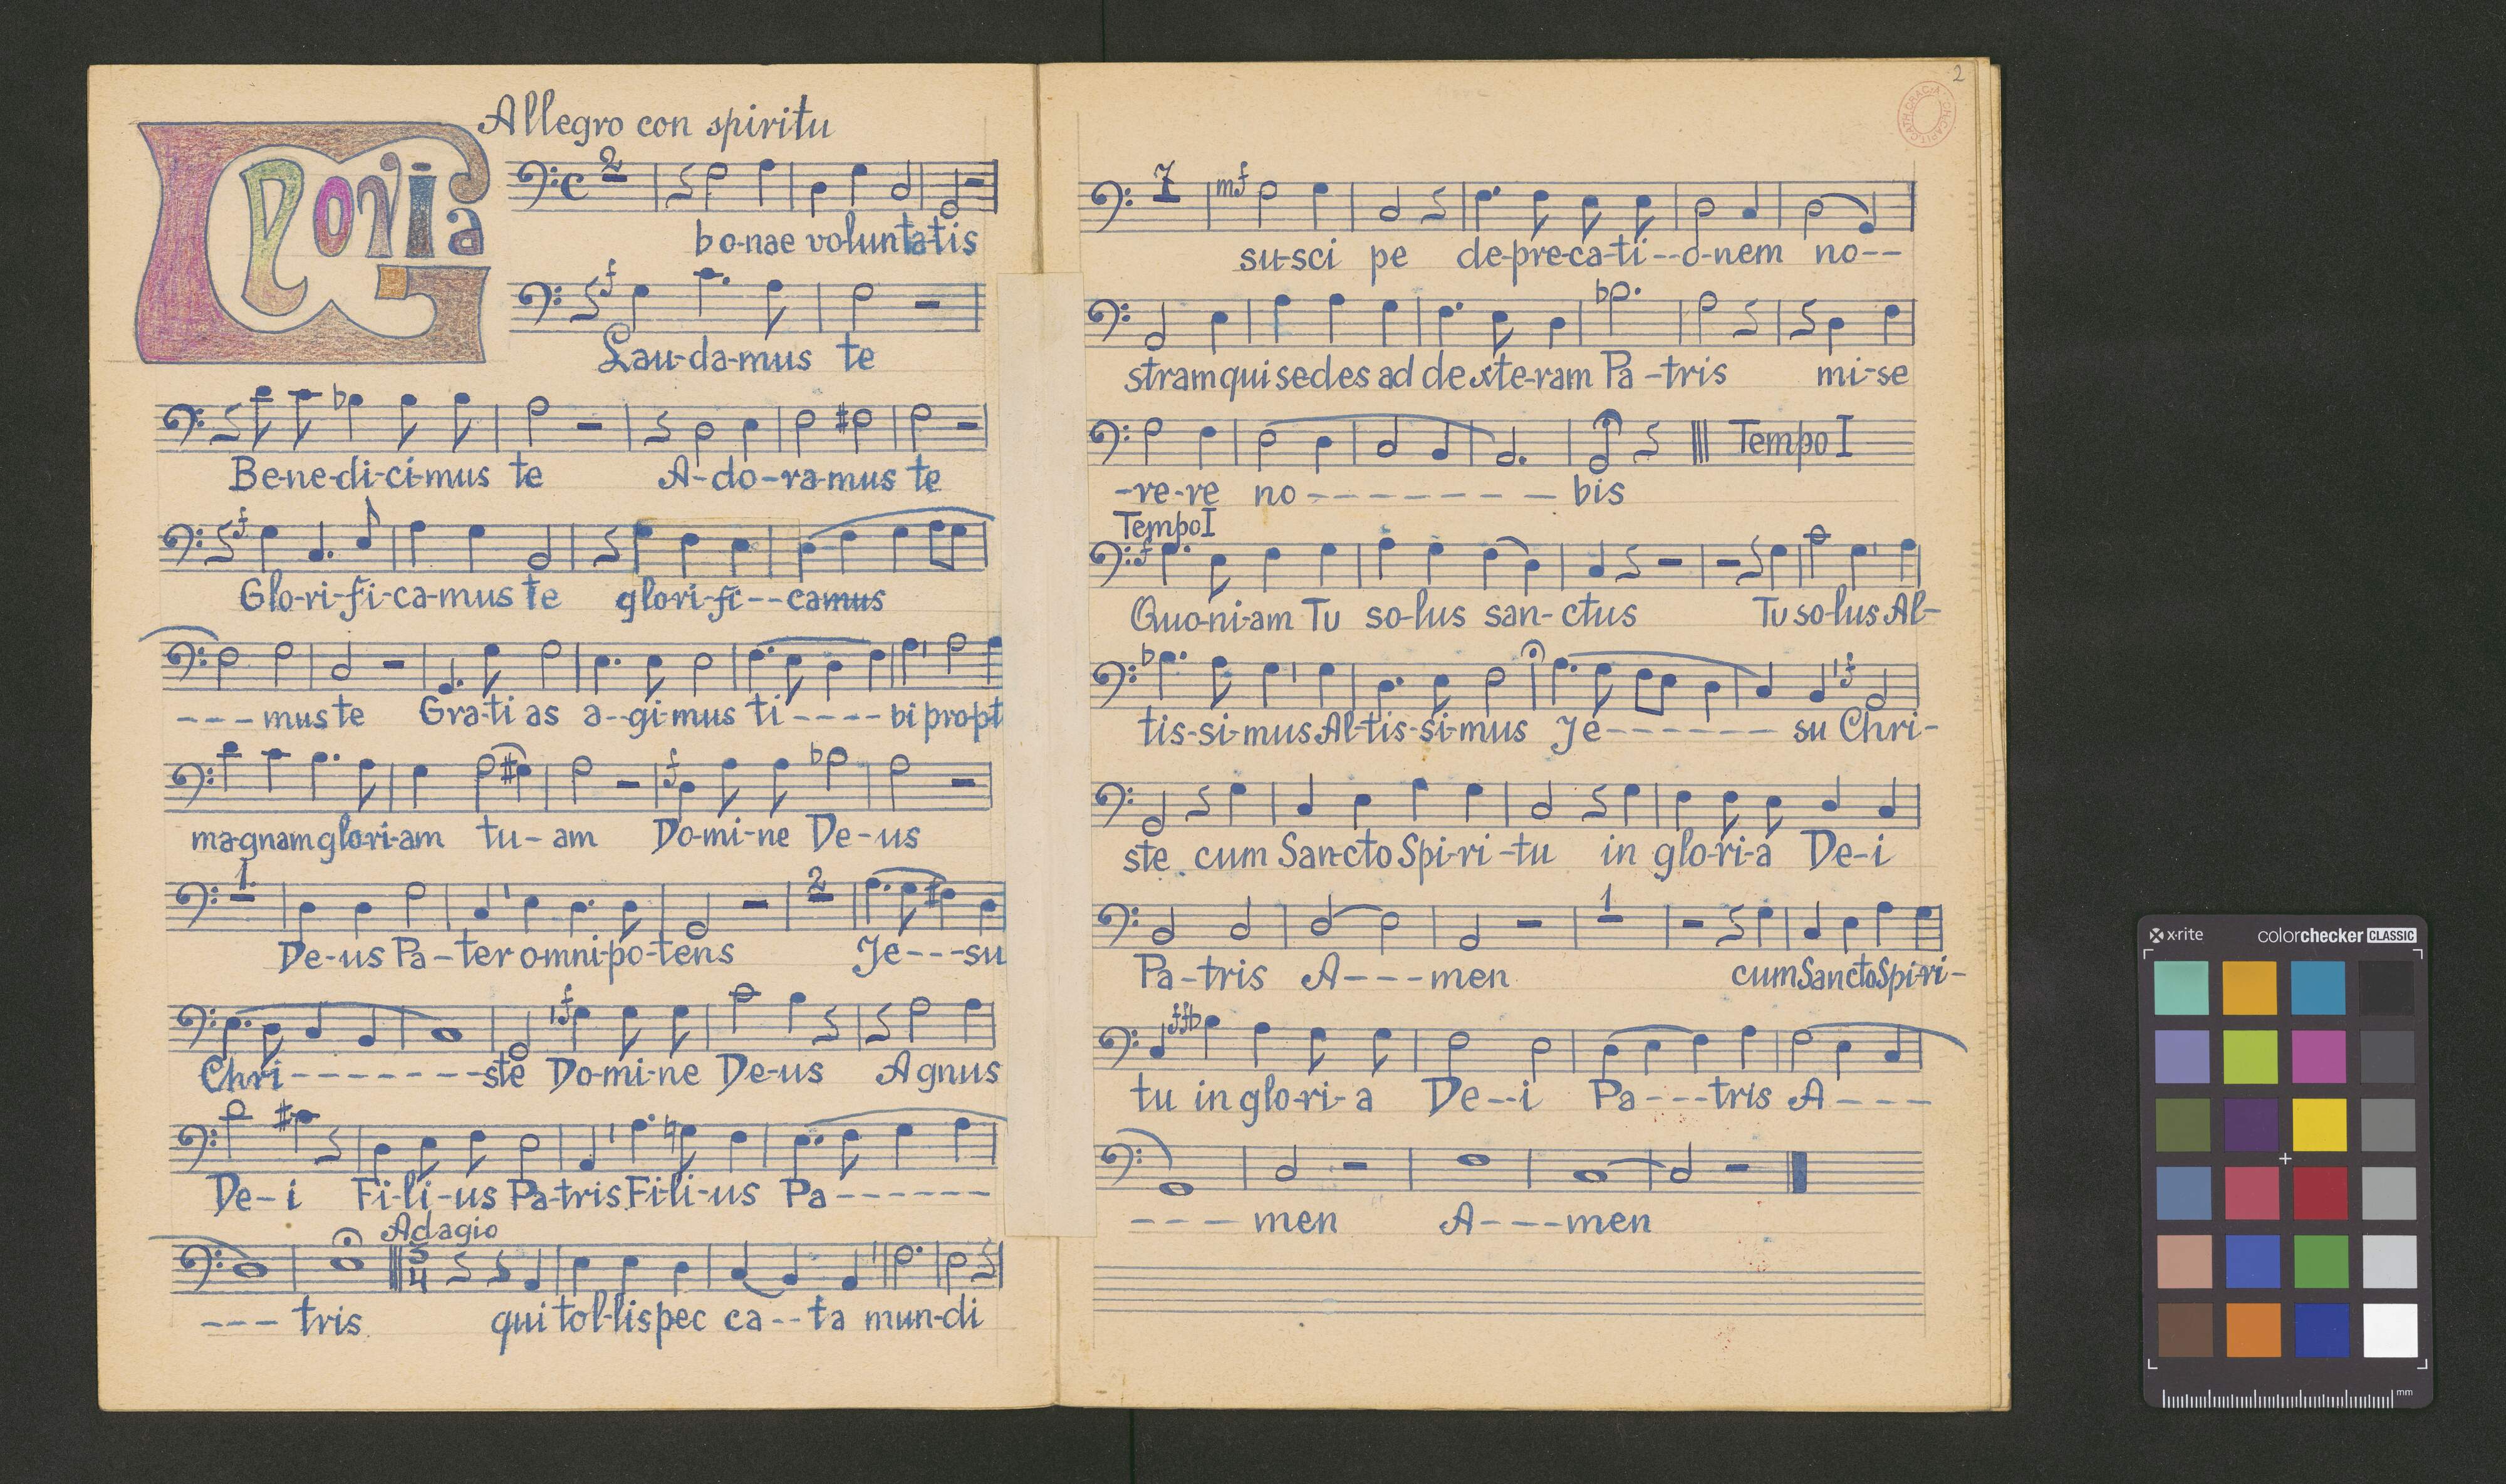 Allegro con spiritu
Gloria
2
bo-nae voluntatis
f
Lau-da-mus te
Be-ne-di-ci-mus te A-do-ra-mus te
f
Glo-ri-fi-ca-mus te glo-ri-fi--camus
---mus te Gra-ti as a--gi-mus ti----bi propt
f
ma-gnam glo-ri-am tu-am Do-mi-ne De-us
1. 2
De-us Pa-ter o-mni-po-tens Je---su
f
Chri-------ste Do-mi-ne De-us A gnus
De-i Fi-li-us Pa-tris Fi-li-us Pa------
Adagio
3
4
--- tris qui tol-lis pec ca--ta mun-di
2
7 mf
su-sci pe de-pre-ca-ti--o-nem no--
stram qui sedes ad dexte-ram Pa-tris mi-se
Tempo I
-re-re no--------bis
Tempo I
f
Quo-ni-am Tu so-lus san-ctus Tu so-lus Al-
f
tis-si-mus Al-tis-si-mus Je------su Chri-
ste. cum Sancto Spi-ri-tu in glo-ri-a De-i
1
Pa-tris A---men cum Sancto Spi-ri-
ff
tu in glo-ri-a De--i Pa---tris A----
---- men A---men
x-rite colorchecker CLASSIC
mm